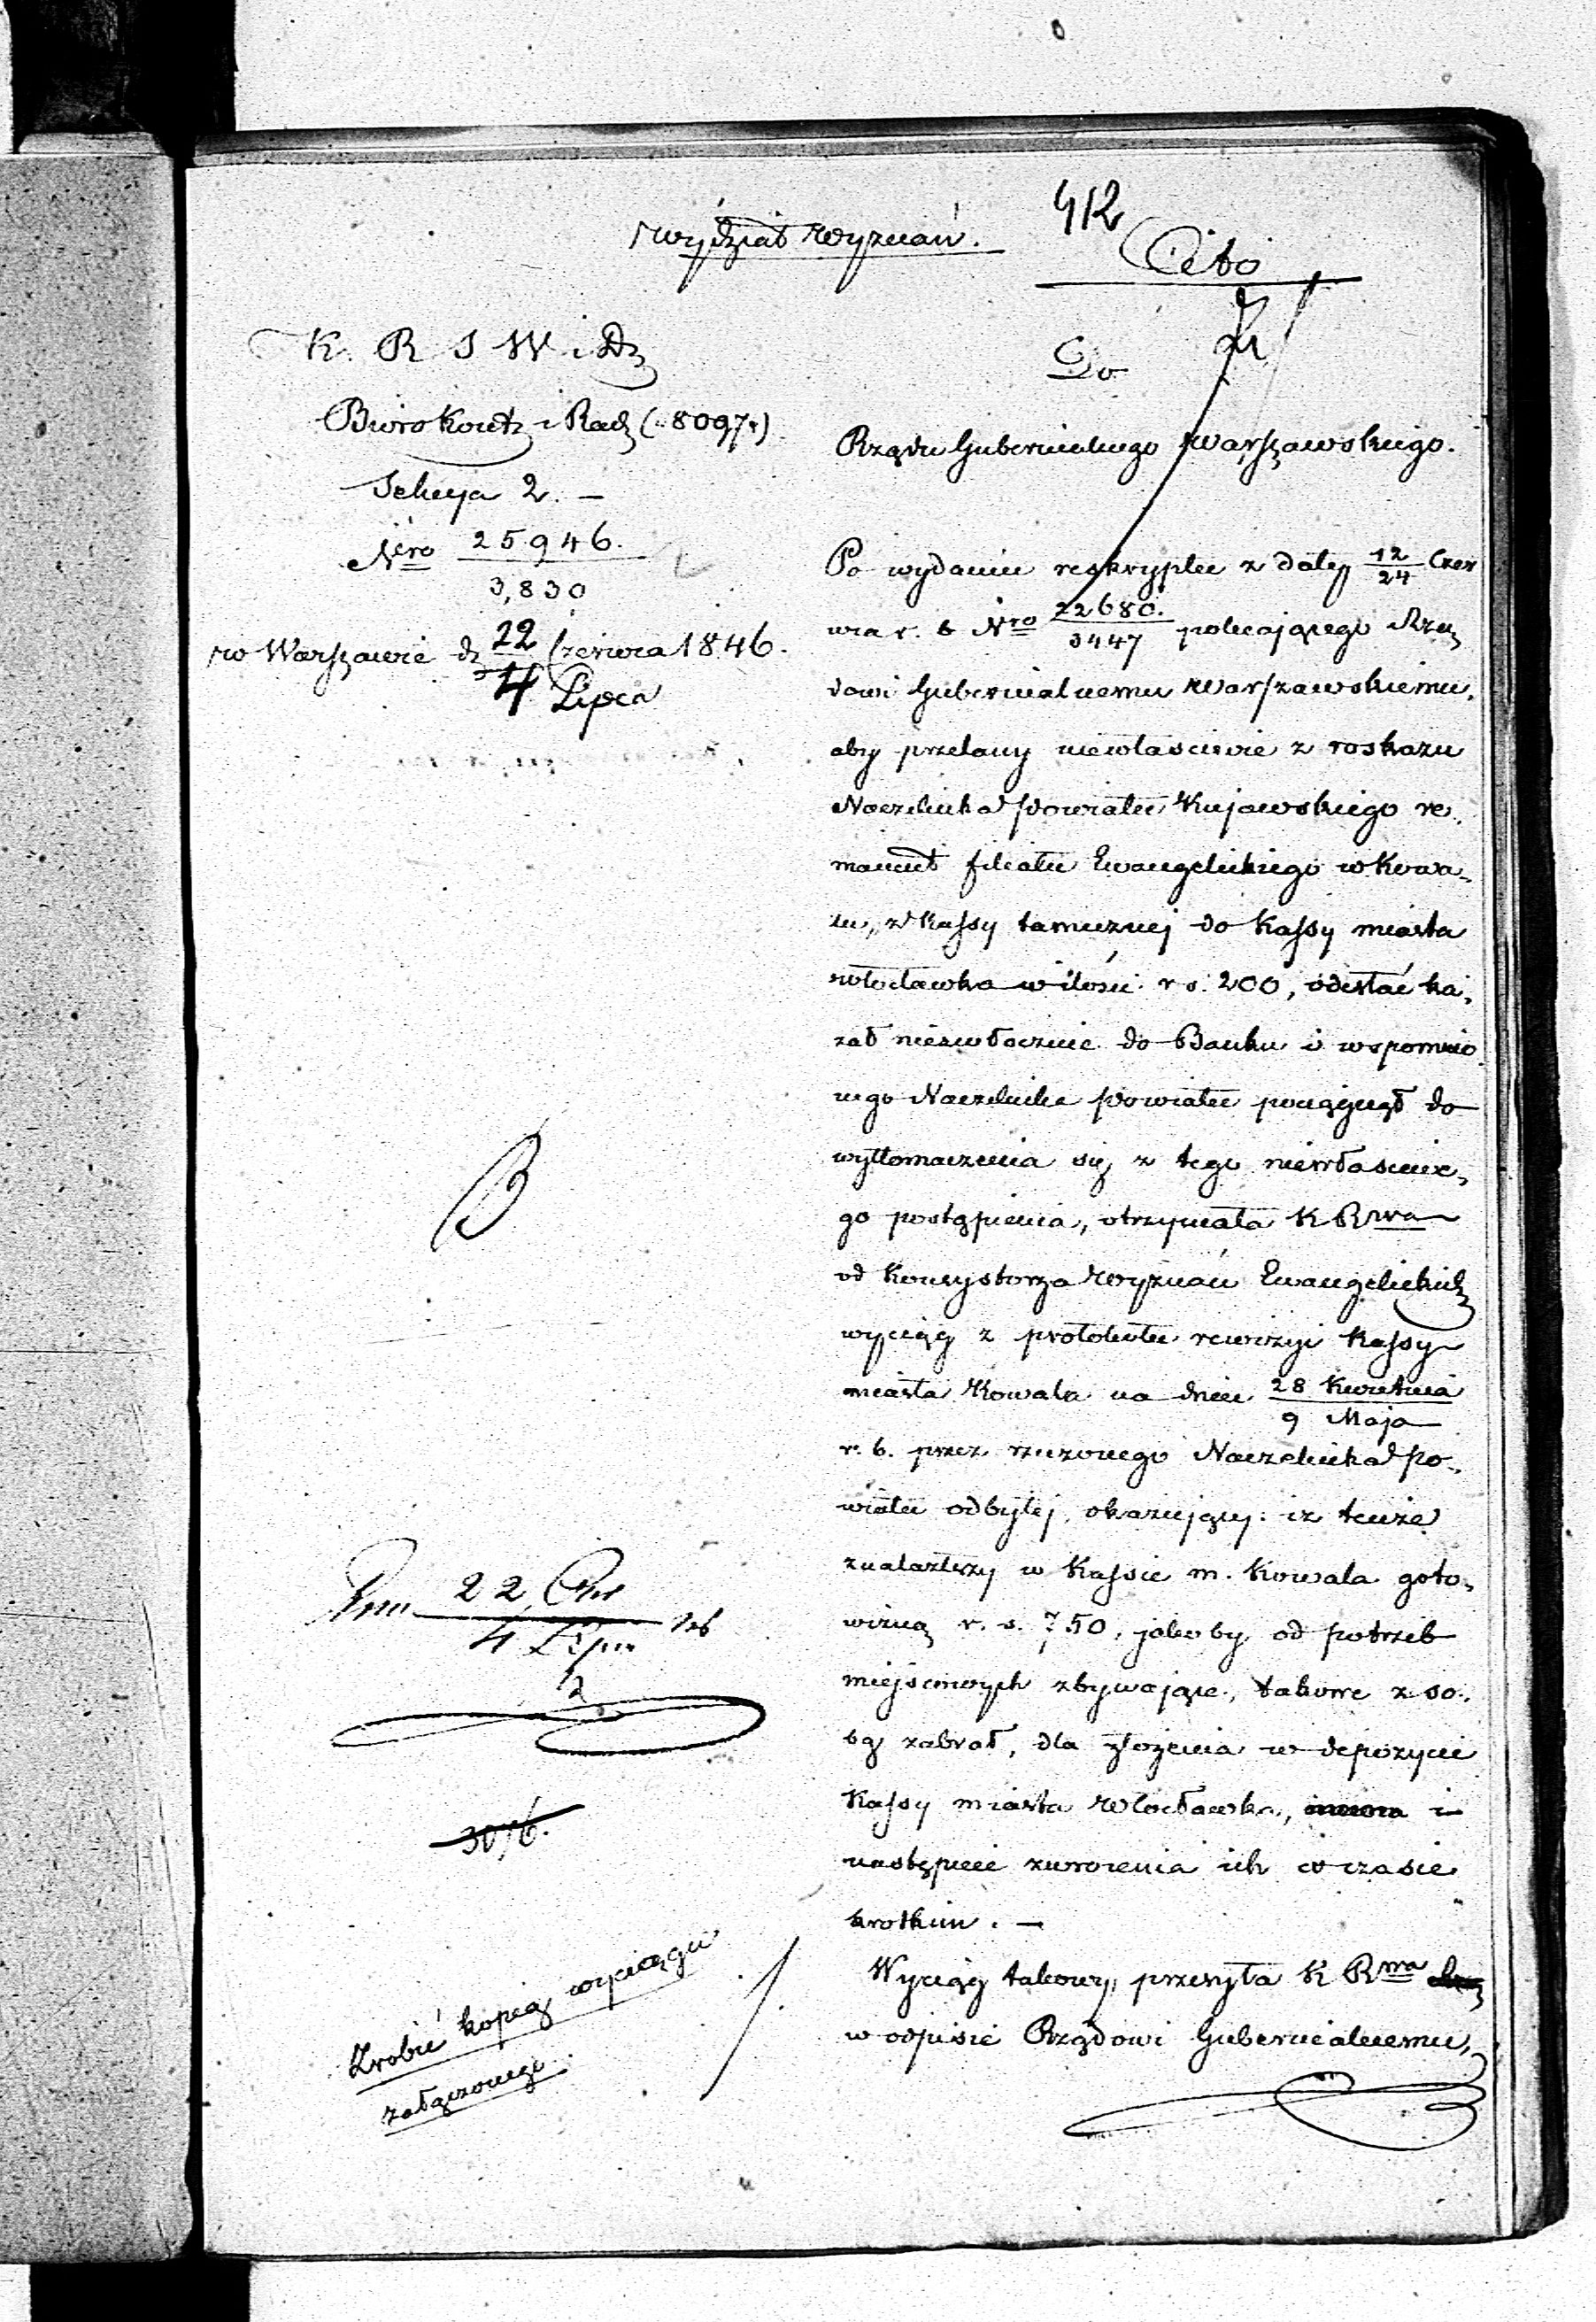 412
Wydział Wyznań.
Cito
K. R S W i D
Biuro Kontr i Rach (8097)
Sekcya 2. –
Nero 25946.
3,830
w Warszawie d 22 Czerwca 1846.
4 Lipca
Do
Rządu Gubernialnego Warszawskiego.
Po wydaniu reskryptu z daty 12/24 Czer
wca r. b Nro 22680./3447 polecającego Rzą
dowi Gubernialnemu Warszawskiemu,
aby przelany niewłasciwie z roskazu
Naczelnika Powiatu Kujawskiego re-
manent filiału Ewangelickiego w Kowa-
lu, z Kassy tamecznej do Kassy miasta
Włocławka w ilości r s. 200, odesłać ka-
zał niezwłocznie do Banku i wspomnio
nego Naczelnika Powiatu pociągnął do
wytłomaczenia się z tego niewłasciwe-
go postąpienia, otrzymała K Rwa
od Konsystorza Wyznań Ewangelickich
wyciąg z protokułu rewizyi Kassy
miasta Kowala na dniu 28 Kwietnia
9 Maja
r. b. przez rzeczonego Naczelnika Po-
wiatu odbytej, okazujący: iż tenże
znalazłszy w Kassie m. Kowala goto-
wizną r. s. 750, jakoby od potrzeb
miejscowych zbywające, takowe z so-
bą zabrał, dla złożenia w depozycie
Kassy miasta Włocławka, i
następnie zwrócenia ich w czasie
krotkim. –
Wyciąg takowy, przesyła K Rwa
w odpisie Rządowi Gubernialnemu,
B
22 Cze
4 Lipca
3076.
Zrobić kopią wyciągu
załączonego